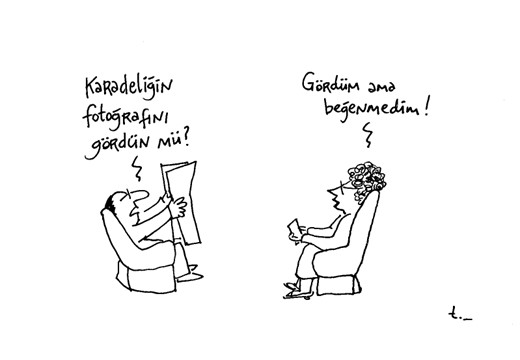 Karadeliğin
fotoğrafını
gördün mü?
Gördüm ama
beğenmedim!
t._